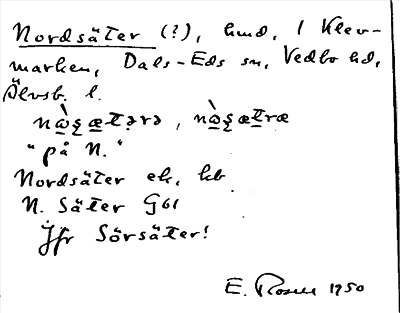 Nordsäter (?), hmd, i Klev-
marken, Dals-Eds sn, Vedbo hd,
Älvsb. l.
"på N."
Nordsäter ek, kb
N. Säter G61
Jfr Sörsäter!
E. Rosell 1950